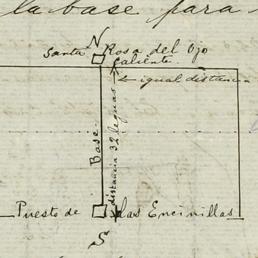 la base para
N
Santa Rosa del Ojo
Caliente
igual distancia
Base
distancia 32 leguas
Puesto de las Encinillas
S